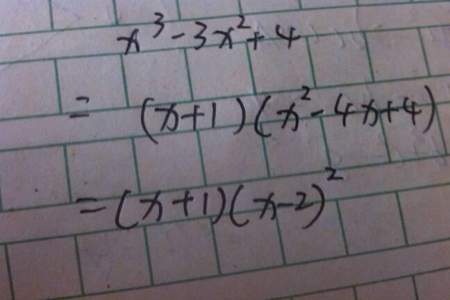 x³ - 3x² + 4
= (x+1)(x² - 4x + 4)
= (x+1)(x-2)²